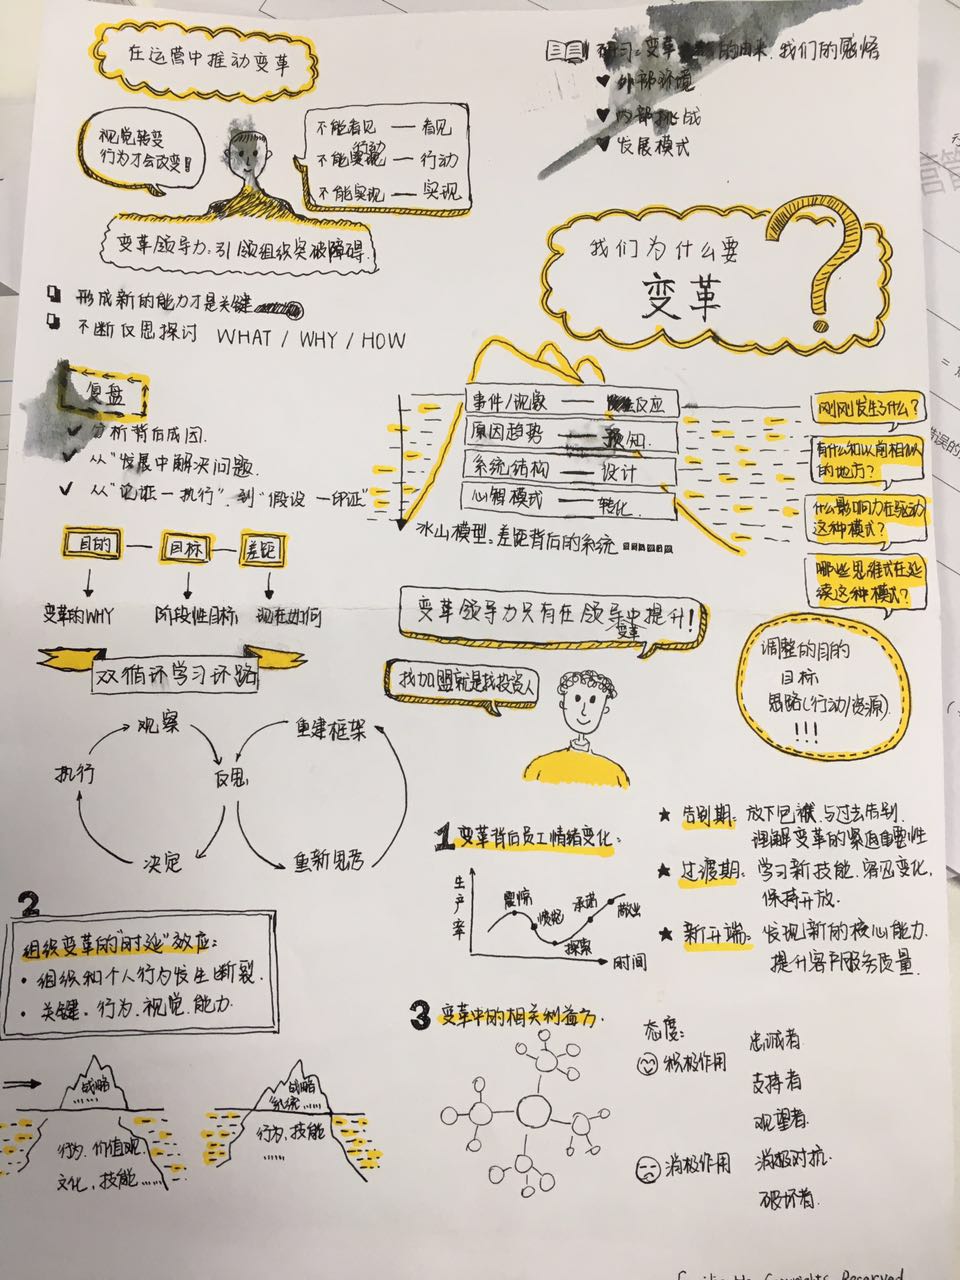 在运营中推动变革
视觉转变
行为才会改变!!
不能看见 — 看见
行动
不能 — 行动
不能实现 — 实现
变革领导力:引领组织突破障碍
研习:变革 的由来,我们的感悟
外部环境
内部挑战
发展模式
我们为什么要
变革
形成新的能力才是关键
不断反思探讨 WHAT / WHY / HOW
复盘
分析背后成因.
从"发展中解决问题.
从"论证—执行"到"假设—印证"
目的 — 目标 — 差距
变革的WHY 阶段性目标 现在如何
事件/现象 — 反应
原因趋势 — 预知.
系统结构 — 设计
心智模式 — 转化.
冰山模型:差距背后的系统
刚刚发生了什么?
有什么和以前相似
的地方?
什么影响力在驱动
这种模式?
哪些思维式在延
续这种模式?
变革领导力只有在领导中提升!
变革
找加盟就是找投资人
调整的目的
目标
思路(行动/资源)
!!!
双循环学习环路
观察
执行
反思
决定
重建框架
重新思考
1 变革背后员工情绪变化:
生产率
震惊
愤怒
探索
承诺
献出
时间
告别期:放下包袱.与过去告别
理解变革的紧迫重要性
过渡期:学习新技能.容忍变化,
保持开放.
新开端:发现新的核心能力.
提升客户服务质量.
2
组织变革的"时延"效应:
• 组织和个人行为发生断裂.
• 关键.行为.视觉.能力.
战略
......
行为.价值观.
文化、技能......
战略
系统......
行为,技能
......
3 变革中的相关利益方.
态度:
积极作用
消极作用
忠诚者
支持者
观望者.
消极对抗.
破坏者.
Copyrights Reserved